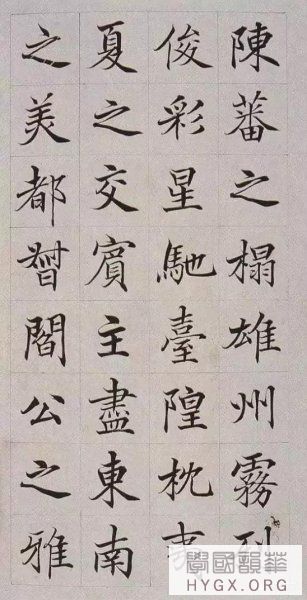 陳蕃之榻雄州霧列
俊彩星馳臺隍枕夷
夏之交賓主盡東南
之美都督閻公之雅
華韻國學
HYGX.ORG